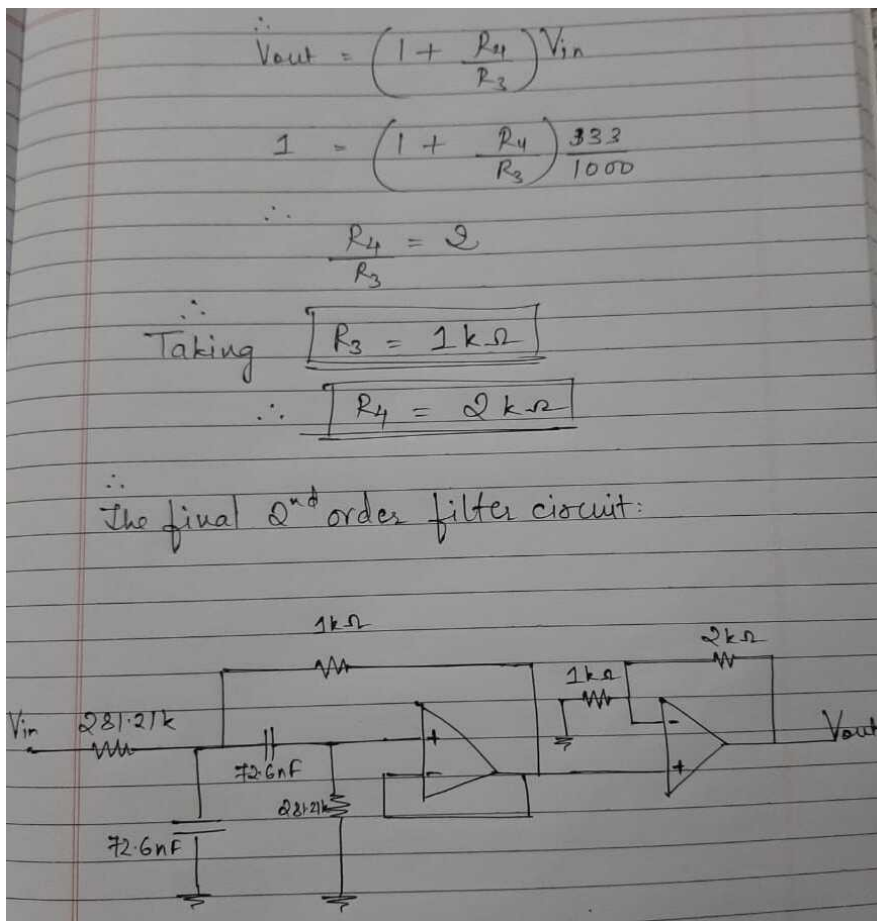 ∴
Vout = (1 + R4/R3) Vin
1 = (1 + R4/R3) 333/1000
∴
R4/R3 = 2
∴
Taking R3 = 1kΩ
∴ R4 = 2kΩ
∴
The final 2nd order filter circuit:
1kΩ
2kΩ
1kΩ
Vin 281.21k
+
-
-
+
Vout
72.6nF
28.21k
72.6nF